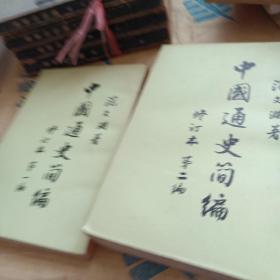 范文瀾著
中國通史简编
修订本 第一编
范文瀾著
中國通史简编
修订本 第二编